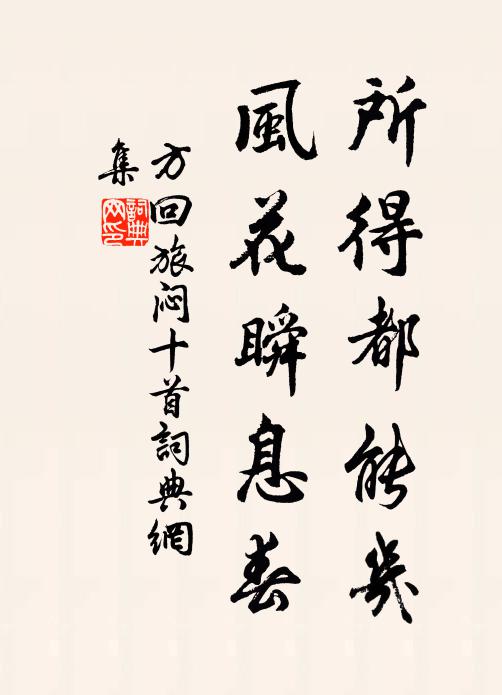 所得都能幾
風花瞬息春
方回旅闷十首詞典網
集
詞典網